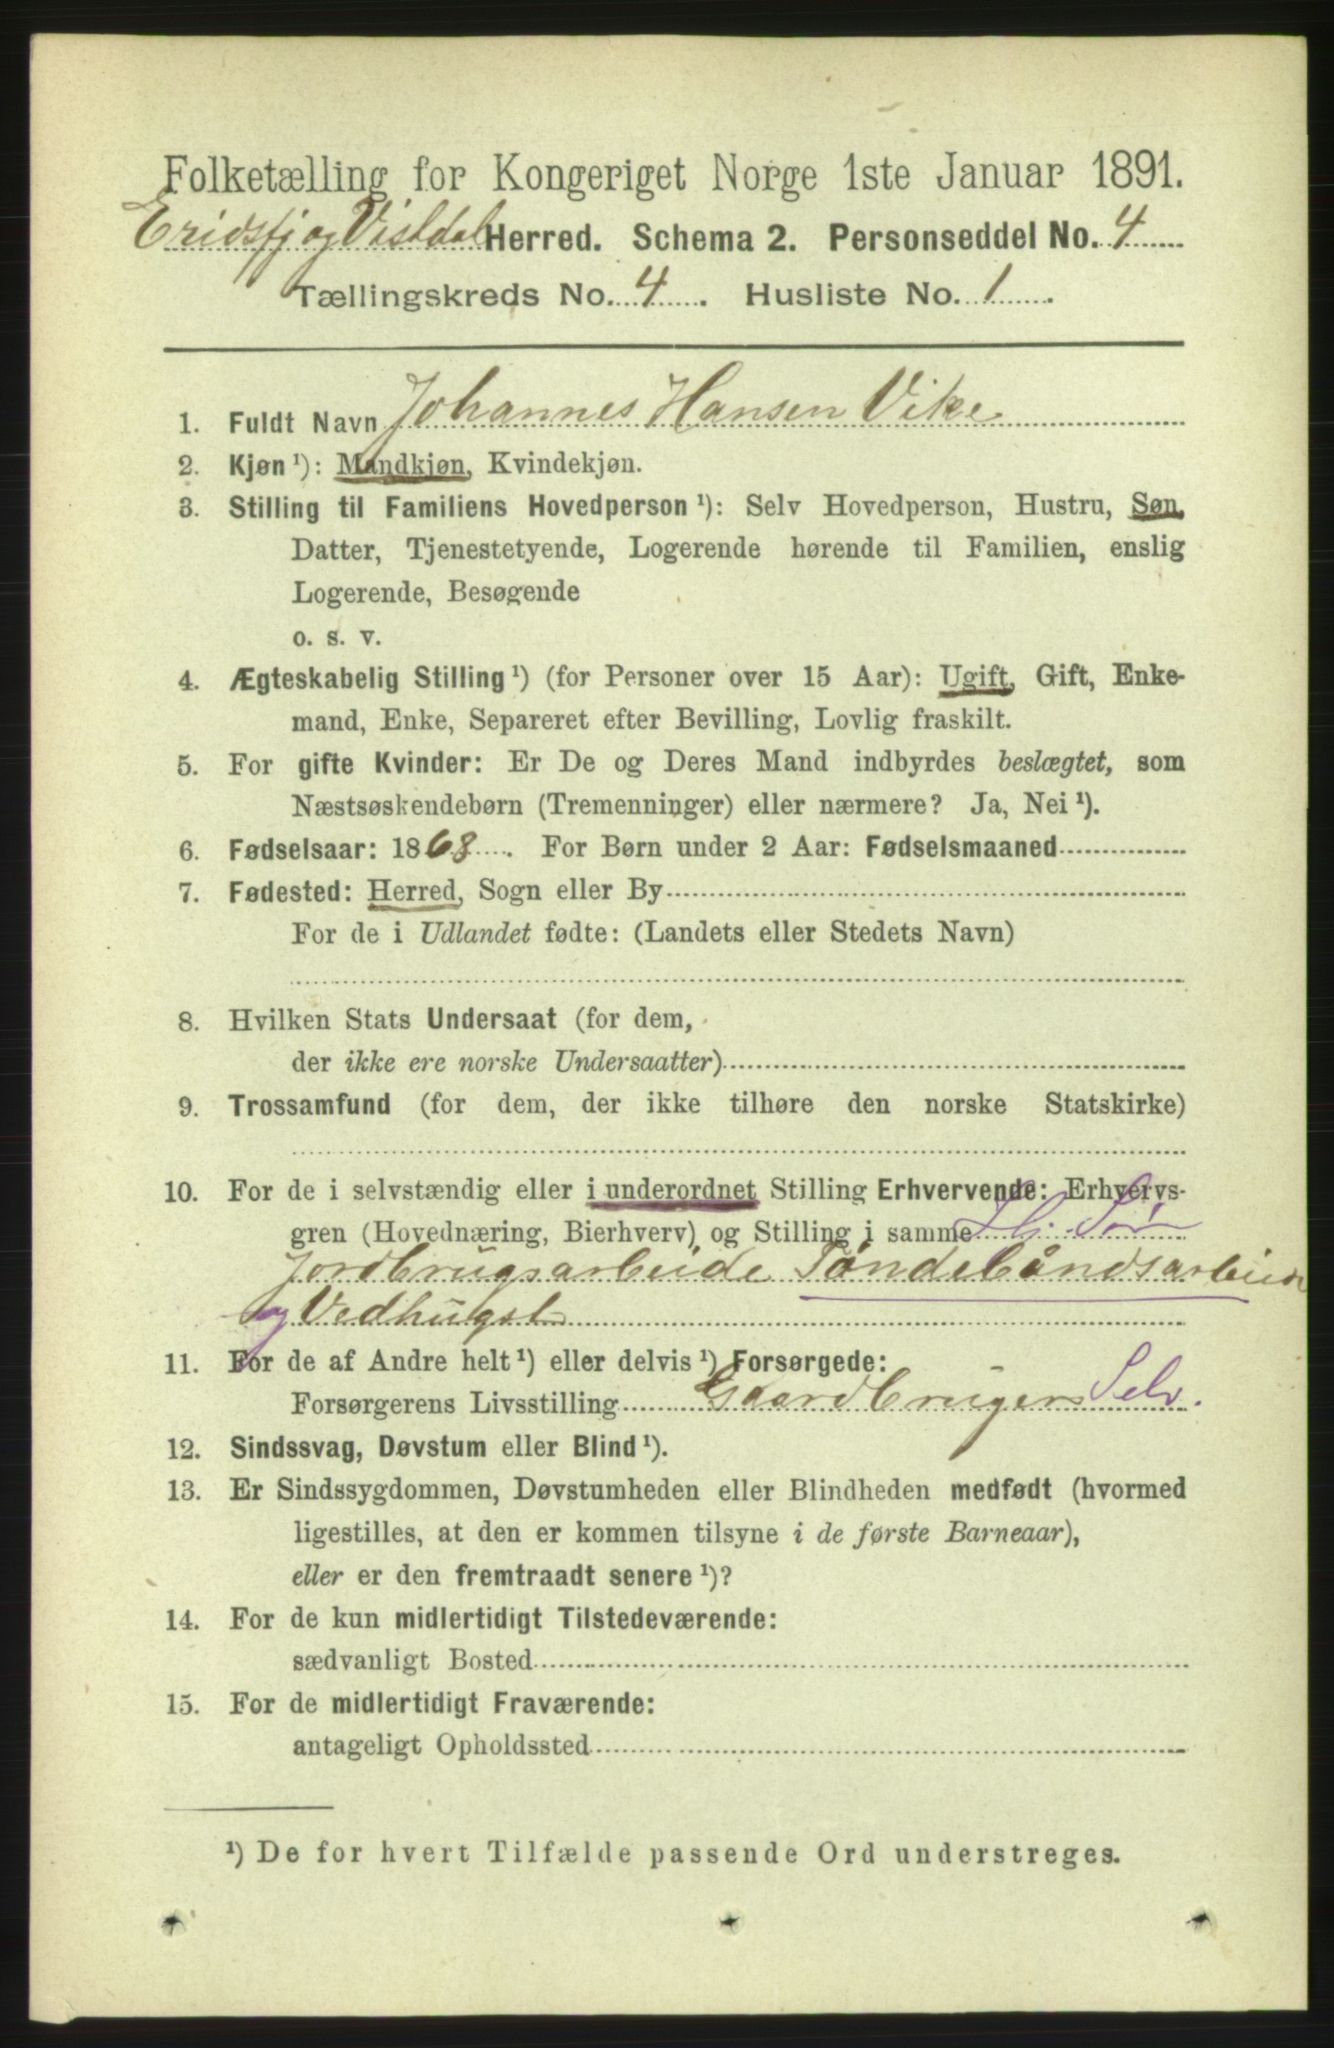 Folketælling for Kongeriget Norge 1ste Januar 1891.
Eridsfj og Vistdal Herred. Schema 2. Personseddel No. 4
Tællingskreds No. 4. Husliste No. 1.
1. Fuldt Navn Johannes Hansen Vike
2. Kjøn ¹): Mandkjøn, Kvindekjøn.
3. Stilling til Familiens Hovedperson ¹): Selv Hovedperson, Hustru, Søn,
Datter, Tjenestetyende, Logerende hørende til Familien, enslig
Logerende, Besøgende
o. s. v.
4. Ægteskabelig Stilling ¹) (for Personer over 15 Aar): Ugift, Gift, Enke-
mand, Enke, Separeret efter Bevilling, Lovlig fraskilt.
5. For gifte Kvinder: Er De og Deres Mand indbyrdes beslægtet, som
Næstsøskendebørn (Tremenninger) eller nærmere? Ja, Nei ¹).
6. Fødselsaar: 1868. For Børn under 2 Aar: Fødselsmaaned
7. Fødested: Herred, Sogn eller By
For de i Udlandet fødte: (Landets eller Stedets Navn)
8. Hvilken Stats Undersaat (for dem,
der ikke ere norske Undersaatter)
9. Trossamfund (for dem, der ikke tilhøre den norske Statskirke)
10. For de i selvstændig eller i underordnet Stilling Erhvervende: Erhvervs-
gren (Hovednæring, Bierhverv) og Stilling i samme
Jordbrugsarbeide Töndebåndsarbeide
og Vedhugst
11. For de af Andre helt ¹) eller delvis ¹) Forsørgede:
Forsørgerens Livsstilling Gaardbrugers Selv.
12. Sindssvag, Døvstum eller Blind ¹).
13. Er Sindssygdommen, Døvstumheden eller Blindheden medfødt (hvormed
ligestilles, at den er kommen tilsyne i de første Barneaar),
eller er den fremtraadt senere ¹)?
14. For de kun midlertidigt Tilstedeværende:
sædvanligt Bosted
15. For de midlertidigt Fraværende:
antageligt Opholdssted
¹) De for hvert Tilfælde passende Ord understreges.